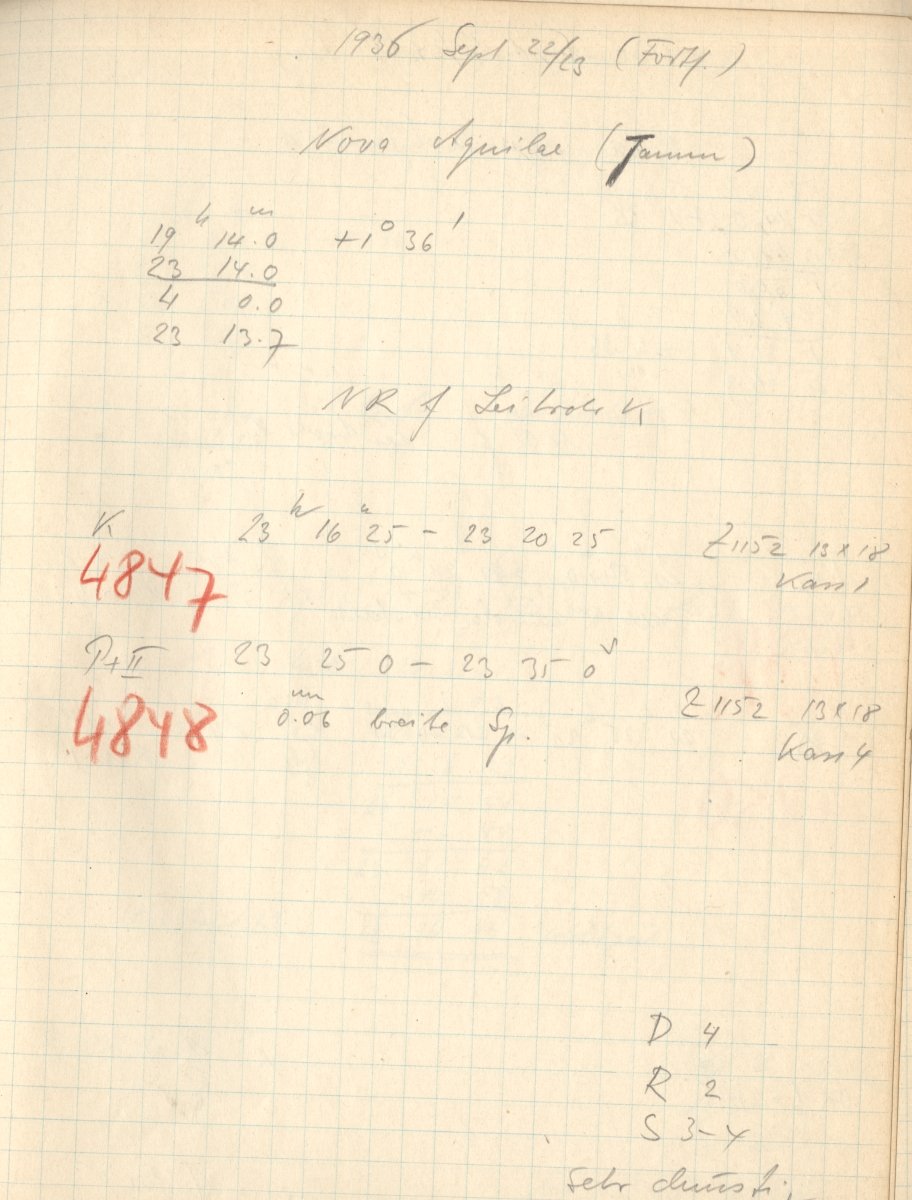 1936 Sept 22/23 (Fortf.)
Nova Aquilae (Tamm)
19 h 14.0 m +1° 36'
23 14.0
4 0.0
23 13.7
NR f Leitrohr K
K 23 h 16 m 25 – 23 20 25 Z1152 13x18
4847 Kass 1
P+II 23 25 0 – 23 35 0 s
4848 0.06 mm breite Sp. Z1152 13x18
Kass 4
D 4
R 2
S 3–4
sehr dunstig